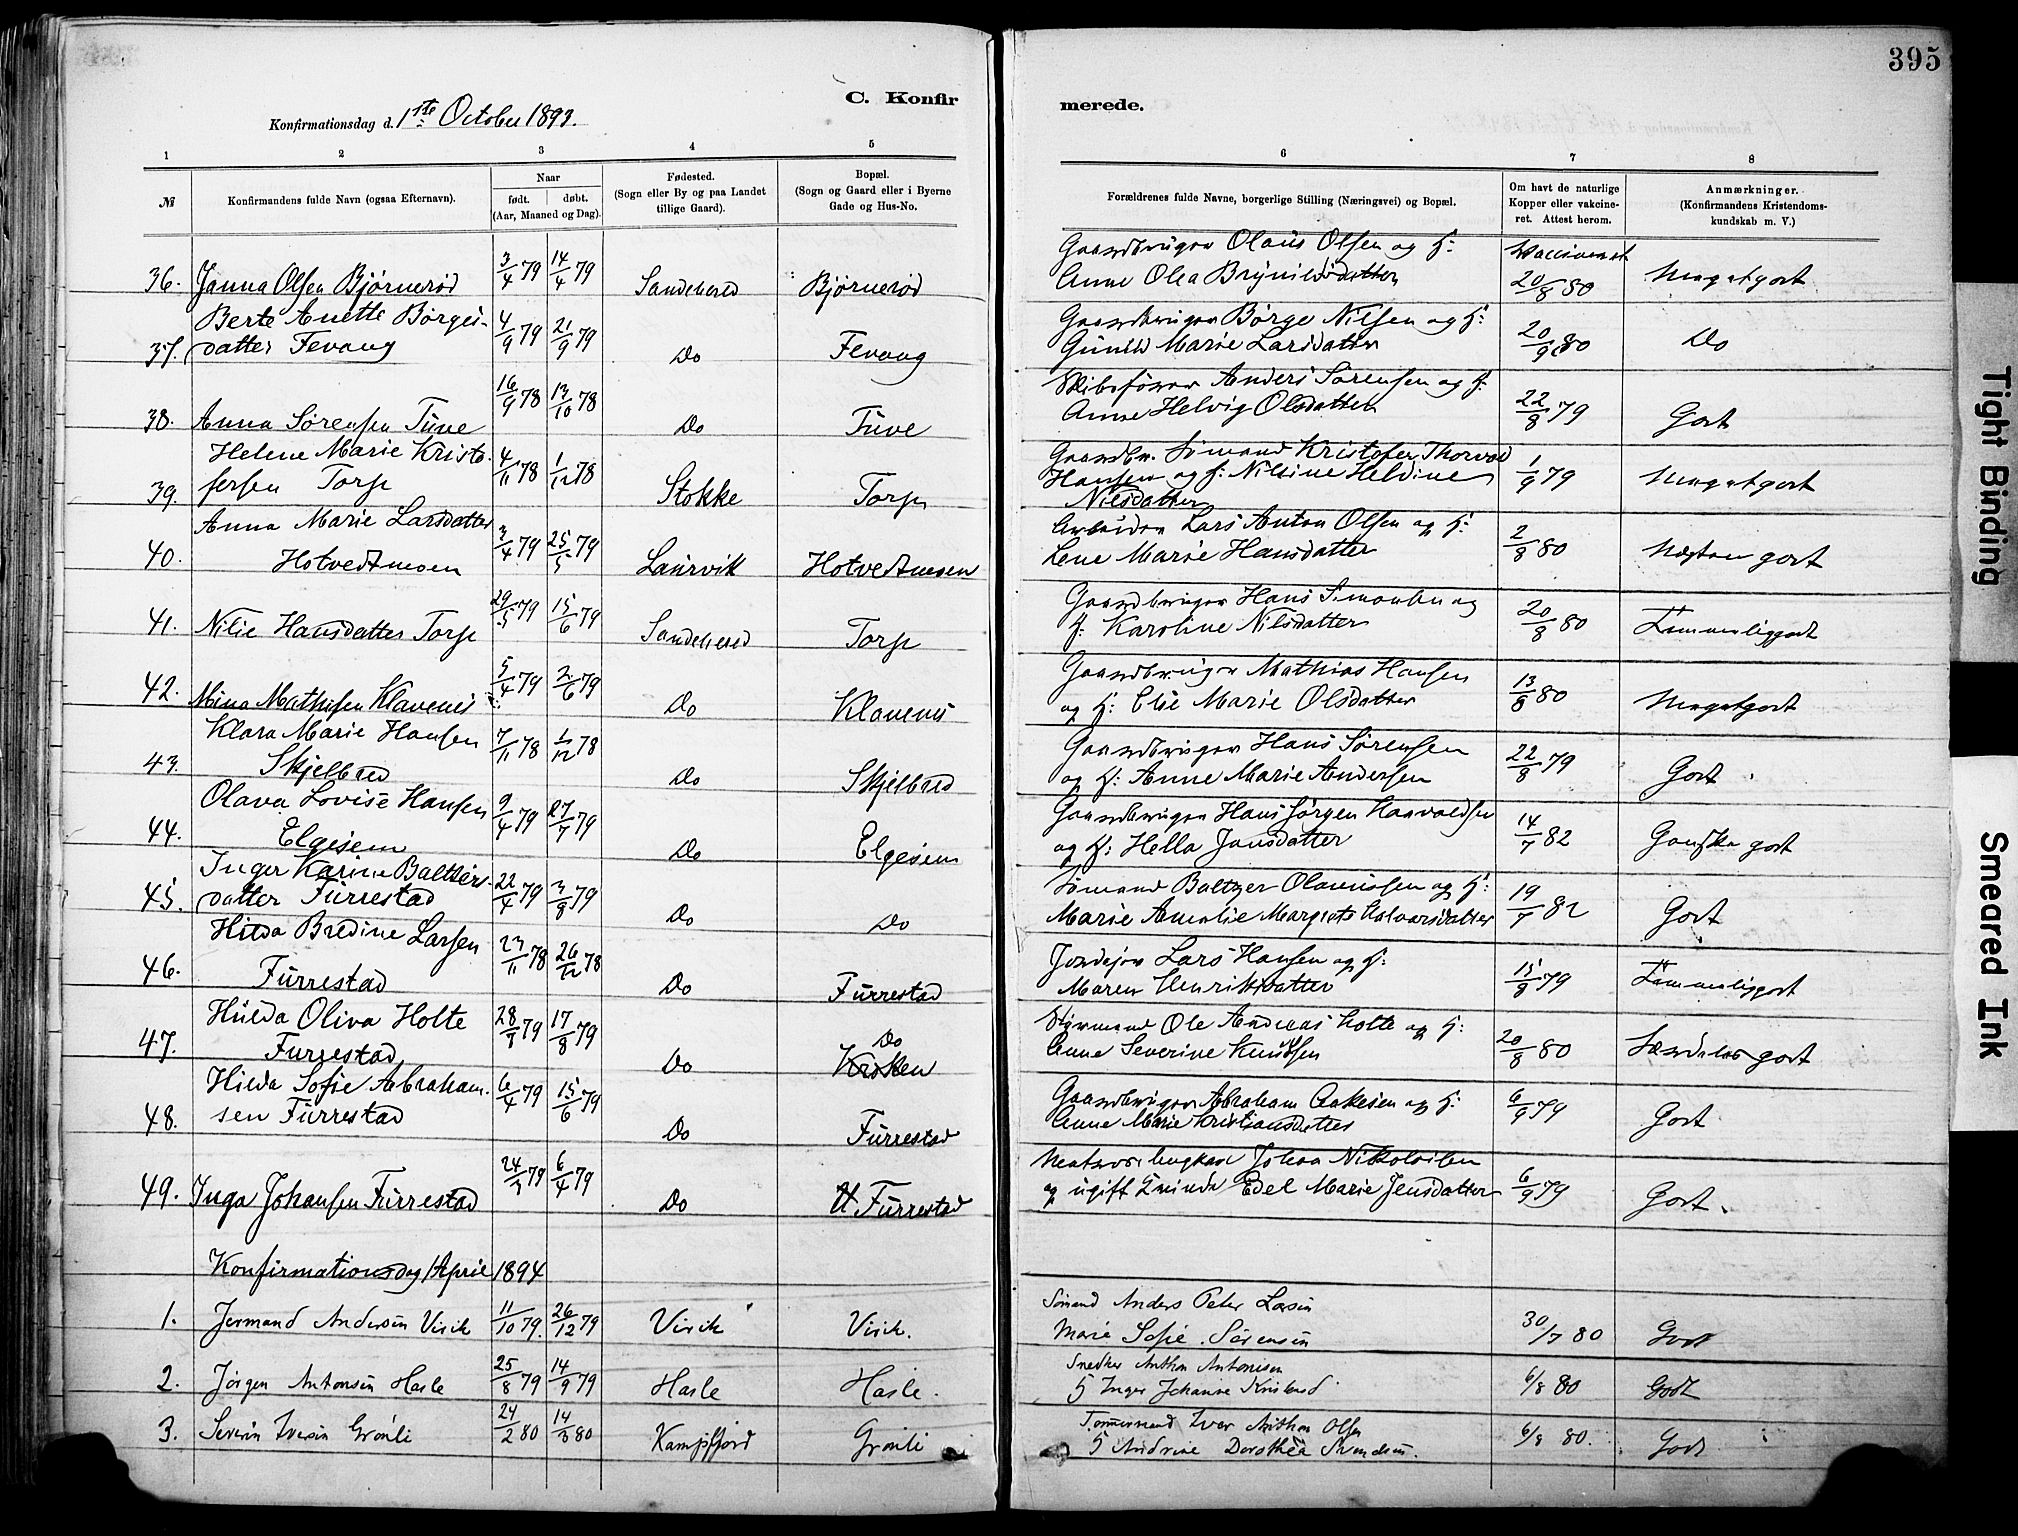 395
C. Konfir
merede.
Konfirmationsdag d. 1ste October 1893.
1 2 3 4 5 6 7 8
№ Konfirmandens fulde Navn (ogsaa Efternavn). Naar født. døbt. (Aar, Maaned og Dag). Fødested. (Sogn eller By og paa Landet tillige Gaard). Bopæl. (Sogn og Gaard eller i Byerne Gade og Hus-No.
Forældrenes fulde Navne, borgerlige Stilling (Næringsvei) og Bopæl. Om havt de naturlige Kopper eller vakcineret. Attest herom. Anmærkninger. (Konfirmandens Kristendomskundskab m. V.)
36. Janna Olsen Bjørnerød 3/4 79 14/4 79 Sandeherred Bjørnerød Gaardbruger Olaus Olsen og H:
Anne Olea Brynildsdatter Vaccineret 20/8 80 Megetgodt
37. Berte Anette Børges-
datter Fevang 4/9 79 21/9 79 Do Fevang Gaardbruger Børge Nilsen og H:
Gunild Marie Larsdatter 20/9 80 Do
38. Anna Sørensen Tuve 16/9 78 13/10 78 Do Tuve Skibsfører Anders Sørensen og H:
Anne Helvig Olsdatter 22/8 79 Godt
39. Helene Marie Kristo-
fersen Torp 4/11 78 1/12 78 Stokke Torp Gaardbr. Sømand Kristofer Thorvald
Hansen og H: Nilsine Heldine
Nilsdatter 1/9 79 Megetgodt
40. Anna Marie Larsdatter
Hotvedtmoen 3/4 79 25/5 79 Laurvik Hotvedtmoen Arbeider Lars Anton Olsen og H:
Lene Marie Hansdatter 2/8 80 Næsten godt
41. Nilie Hansdatter Torp 29/5 79 15/6 79 Sandeherred Torp Gaardbruger Hans Simonsen og
H: Karoline Nilsdatter 20/8 80 Temmeliggodt
42. Mina Mathisen Klavenes 5/4 79 2/6 79 Do Klavenes Gaardbruger Mathias Hansen
og H: Elie Marie Olsdatter 13/8 80 Megetgodt
43. Klara Marie Hansen
Skjelbred 7/11 78 1/12 78 Do Skjelbred Gaardbruger Hans Sørensen
og H: Anne Marie Andersen 22/8 79 Godt
44. Olava Lovise Hansen
Elgesem 9/4 79 27/7 79 Do Elgesem Gaardbruger Hans Jørgen Haavaldsen
og H: Hella Jansdatter 14/7 82 Ganske godt
45. Inger Karine Baltzers-
datter Furrestad 22/4 79 3/8 79 Do Do Sømand Baltzer Olaussen og H:
Marie Amalie Margrete Halvorsdatter 19/7 82 Godt
46. Hilda Bredine Larsen
Furrestad 23/11 78 26/12 78 Do Furrestad Jordejer Lars Hansen og H:
Maren Henriksdatter 15/8 79 Temmeliggodt
47. Hulda Oliva Holte
Furrestad 28/7 79 17/8 79 Do Do
Krokken Styrmand Ole Andreas Holte og H:
Anne Severine Knudsen 20/8 80 Særdeles godt
48. Hilda Sofie Abraham-
sen Furrestad 6/4 79 15/6 79 Do Furrestad Gaardbruger Abraham Aakesen og H:
Anne Marie Kristiansdatter 6/9 79 Godt
49. Inga Johansen Furrestad 24/3 79 6/4 79 Do U Furrestad Matros Ungkarl Johan Nikolaisen
og ugift Kvinde Edel Marie Jensdatter 6/9 79 Godt.
Konfirmationsdag 1 April 1894
1. Jermand Andersen Virik 11/10 79. 26/12 79 Virik Virik. Sømand Anders Peter Larsen
Marie Sofie Sørensen 30/7 80 Godt
2. Jørgen Antonsen Hasle 25/8 79 14/9 79 Hasle Hasle. Snedker Anthon Antonisen
H Inger Johanne 6/8 80 Godt
3. Severin Iversen Grønli 24/2 80 14/3 80 Kampfjord Grønli Tømmermand Iver Anthon Olsen
H Andrine Dorothea 6/8 80. Godt
Tight Binding
Smeared Ink